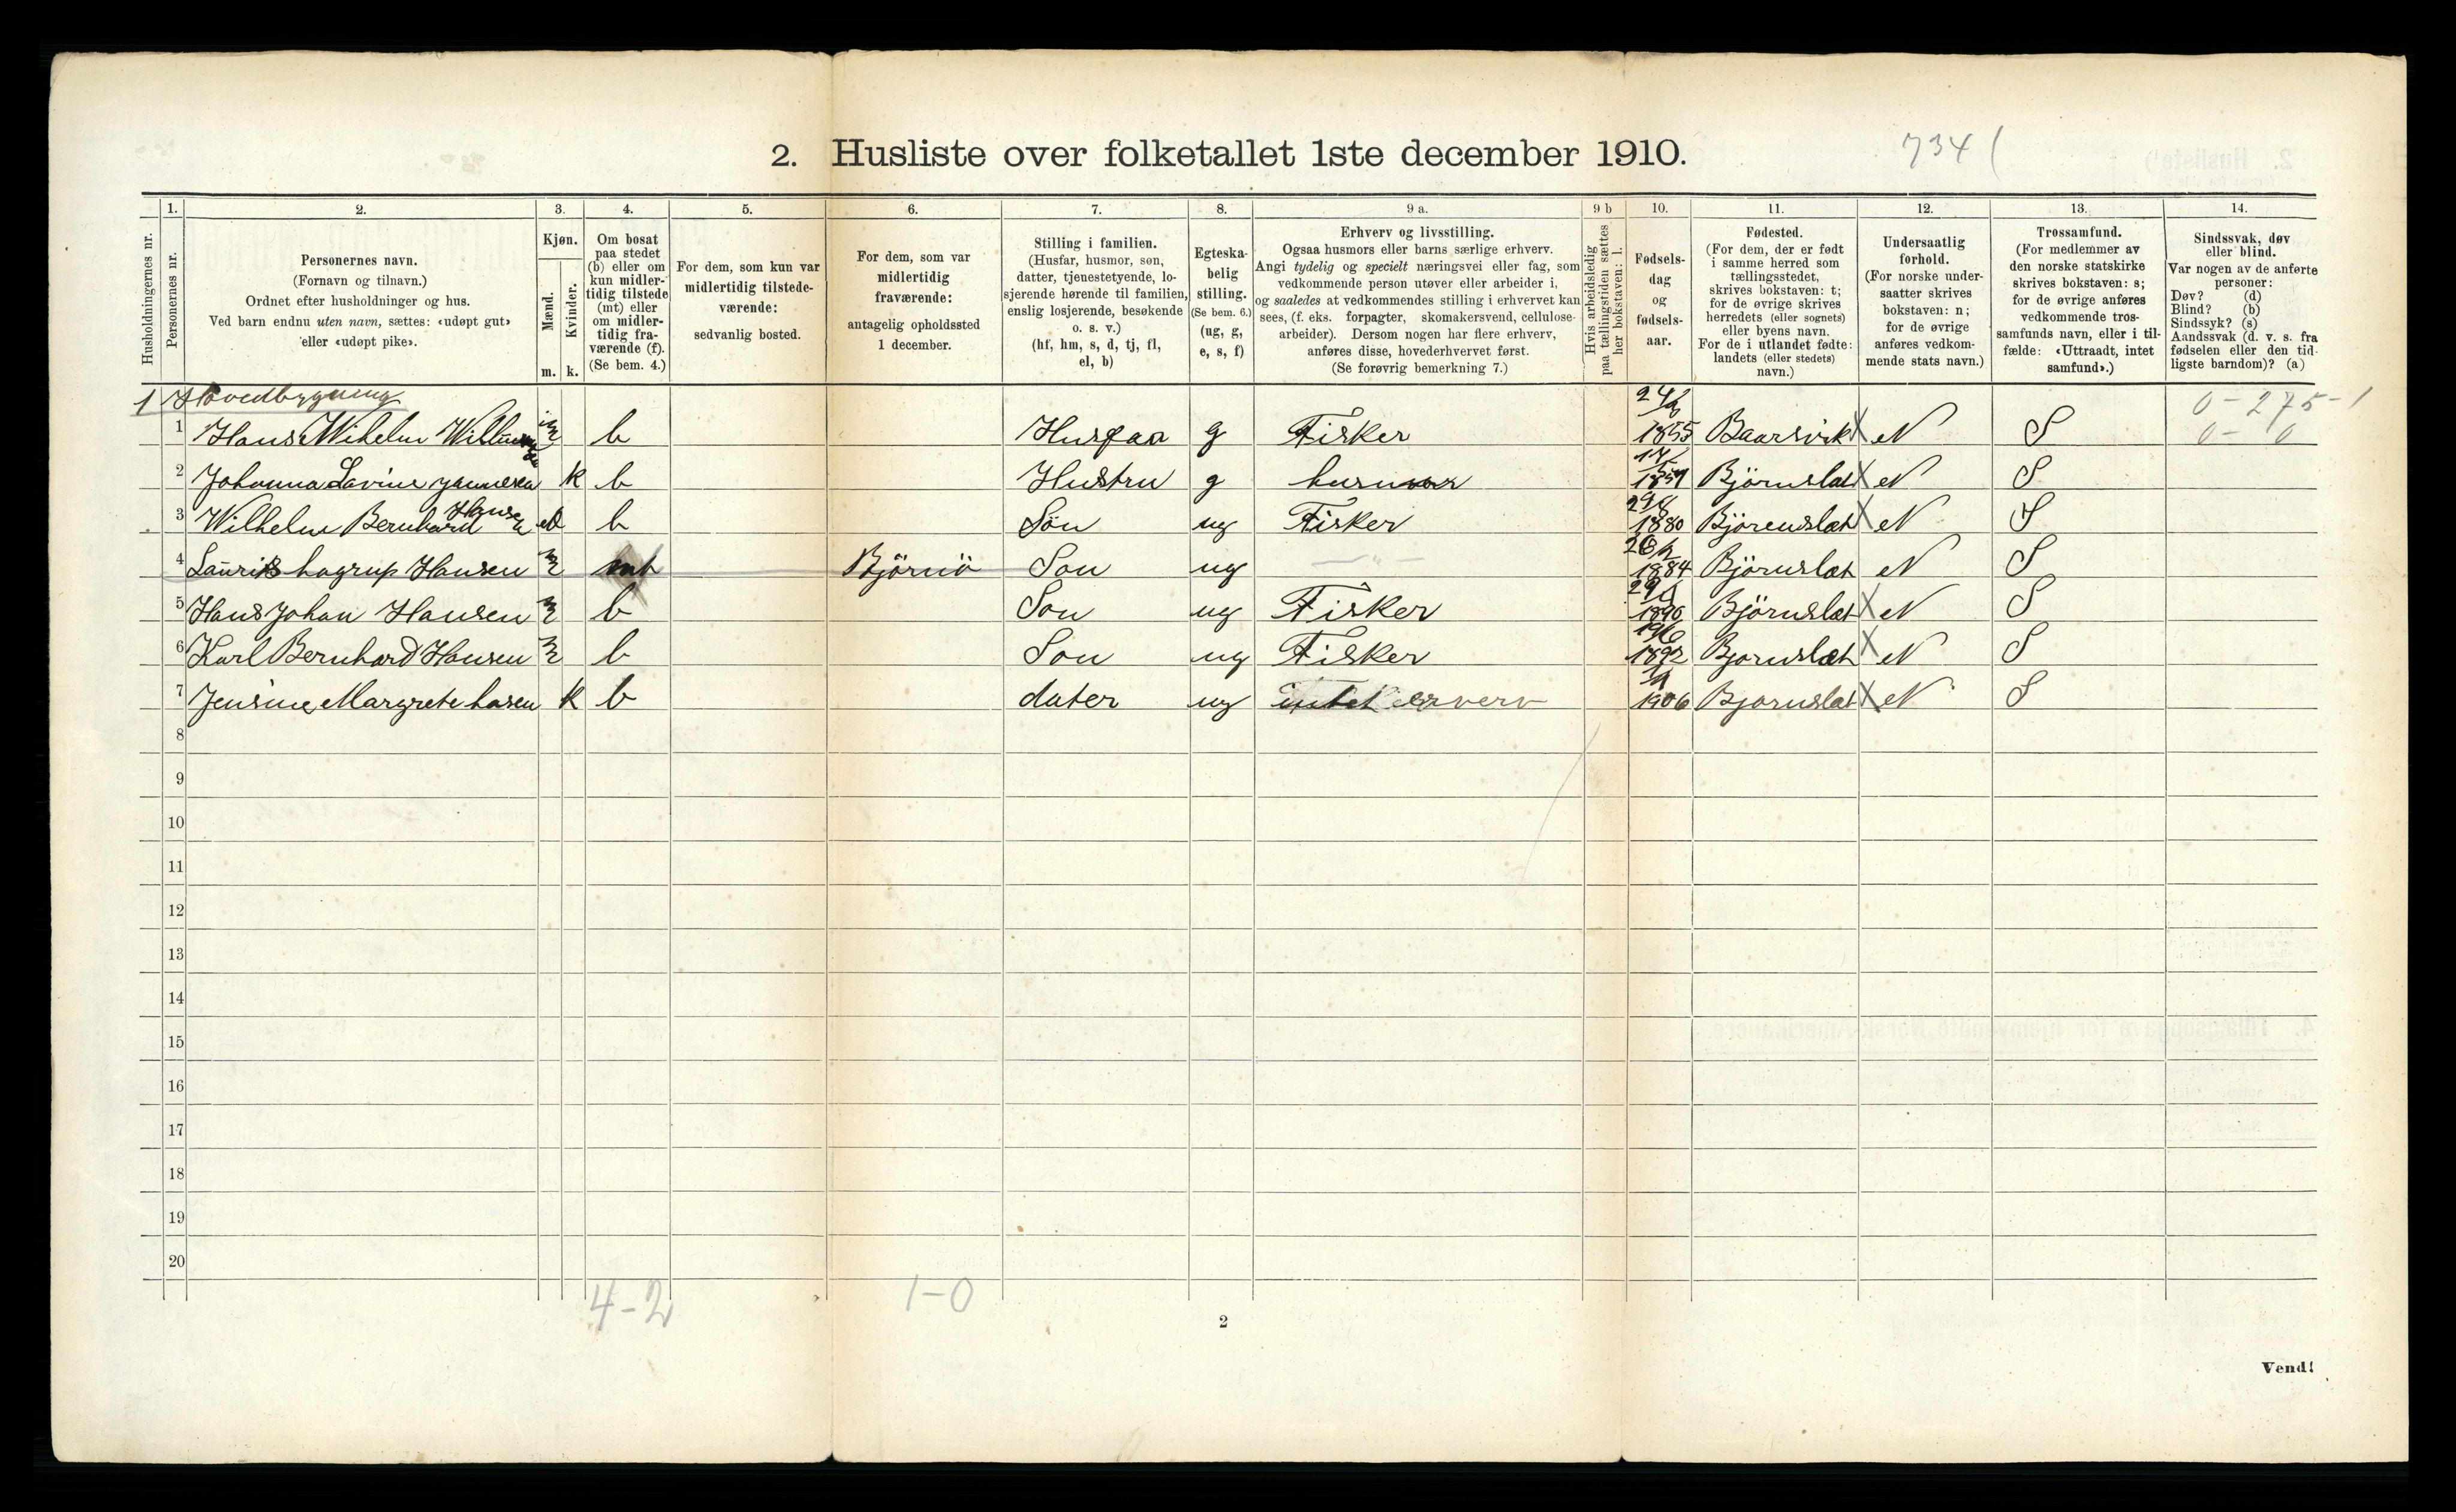 2. Husliste over folketallet 1ste december 1910.
734 (
Husholdningernes nr.
1. Personernes nr.
2. Personernes navn. (Fornavn og tilnavn.) Ordnet efter husholdninger og hus. Ved barn endnu uten navn, sættes: «udøpt gut» eller «udøpt pike».
3. Kjøn. Mænd. m. Kvinder. k.
4. Om bosat paa stedet (b) eller om kun midlertidig tilstede (mt) eller om midlertidig fraværende (f). (Se bem. 4.)
5. For dem, som kun var midlertidig tilstedeværende: sedvanlig bosted.
6. For dem, som var midlertidig fraværende: antagelig opholdssted 1 december.
7. Stilling i familien. (Husfar, husmor, søn, datter, tjenestetyende, losjerende hørende til familien, enslig losjerende, besøkende o. s. v.) (hf, hm, s, d, tj, fl, el, b)
8. Egteskabelig stilling. (Se bem. 6.) (ug, g, e, s, f)
9 a. Erhverv og livsstilling. Ogsaa husmors eller barns særlige erhverv. Angi tydelig og specielt næringsvei eller fag, som vedkommende person utøver eller arbeider i, og saaledes at vedkommendes stilling i erhvervet kan sees, (f. eks. forpagter, skomakersvend, cellulosearbeider). Dersom nogen har flere erhverv, anføres disse, hovederhvervet først. (Se forøvrig bemerkning 7.)
9 b Hvis arbeidsledig paa tællingstiden sættes her bokstaven: l.
10. Fødselsdag og fødselsaar.
11. Fødested. (For dem, der er født i samme herred som tællingsstedet, skrives bokstaven: t; for de øvrige skrives herredets (eller sognets) eller byens navn. For de i utlandet fødte: landets (eller stedets) navn.)
12. Undersaatlig forhold. (For norske undersaatter skrives bokstaven: n; for de øvrige anføres vedkommende stats navn.)
13. Trossamfund. (For medlemmer av den norske statskirke skrives bokstaven: s; for de øvrige anføres vedkommende trossamfunds navn, eller i tilfælde: «Uttraadt, intet samfund».)
14. Sindssvak, døv eller blind. Var nogen av de anførte personer: Døv? (d) Blind? (b) Sindssyk? (s) Aandssvak (d. v. s. fra fødselen eller den tidligste barndom)? (a)
1 Hovedbygning 0-275-1
1 Hans Wihelm m b Husfaa g Fisker 1855 Baarsvik X N S 0-0
2 Johanna Lavine k b Hustru g husmor Björnslet X N S
3 Wilhelm Bernhard Hansen b Sön ug Fisker 1880 Björenslet X N S
4 Laurits hagrup Hansen m mt Björnö Son ug 1884 Björnslet N S
5 Hans Johan Hansen m b Son ug Fisker 1890 Björnslet X N S
6 Karl Bernhard Hansen m b Son ug Fisker 1892 Bjornslet X N S
7 Jensine Margrete hasen k b dater ug intet erverv 1906 Bjornslet X N S
8
9
10
11
12
13
14
15
16
17
18
19
20
4-2 1-0
2
Vend!